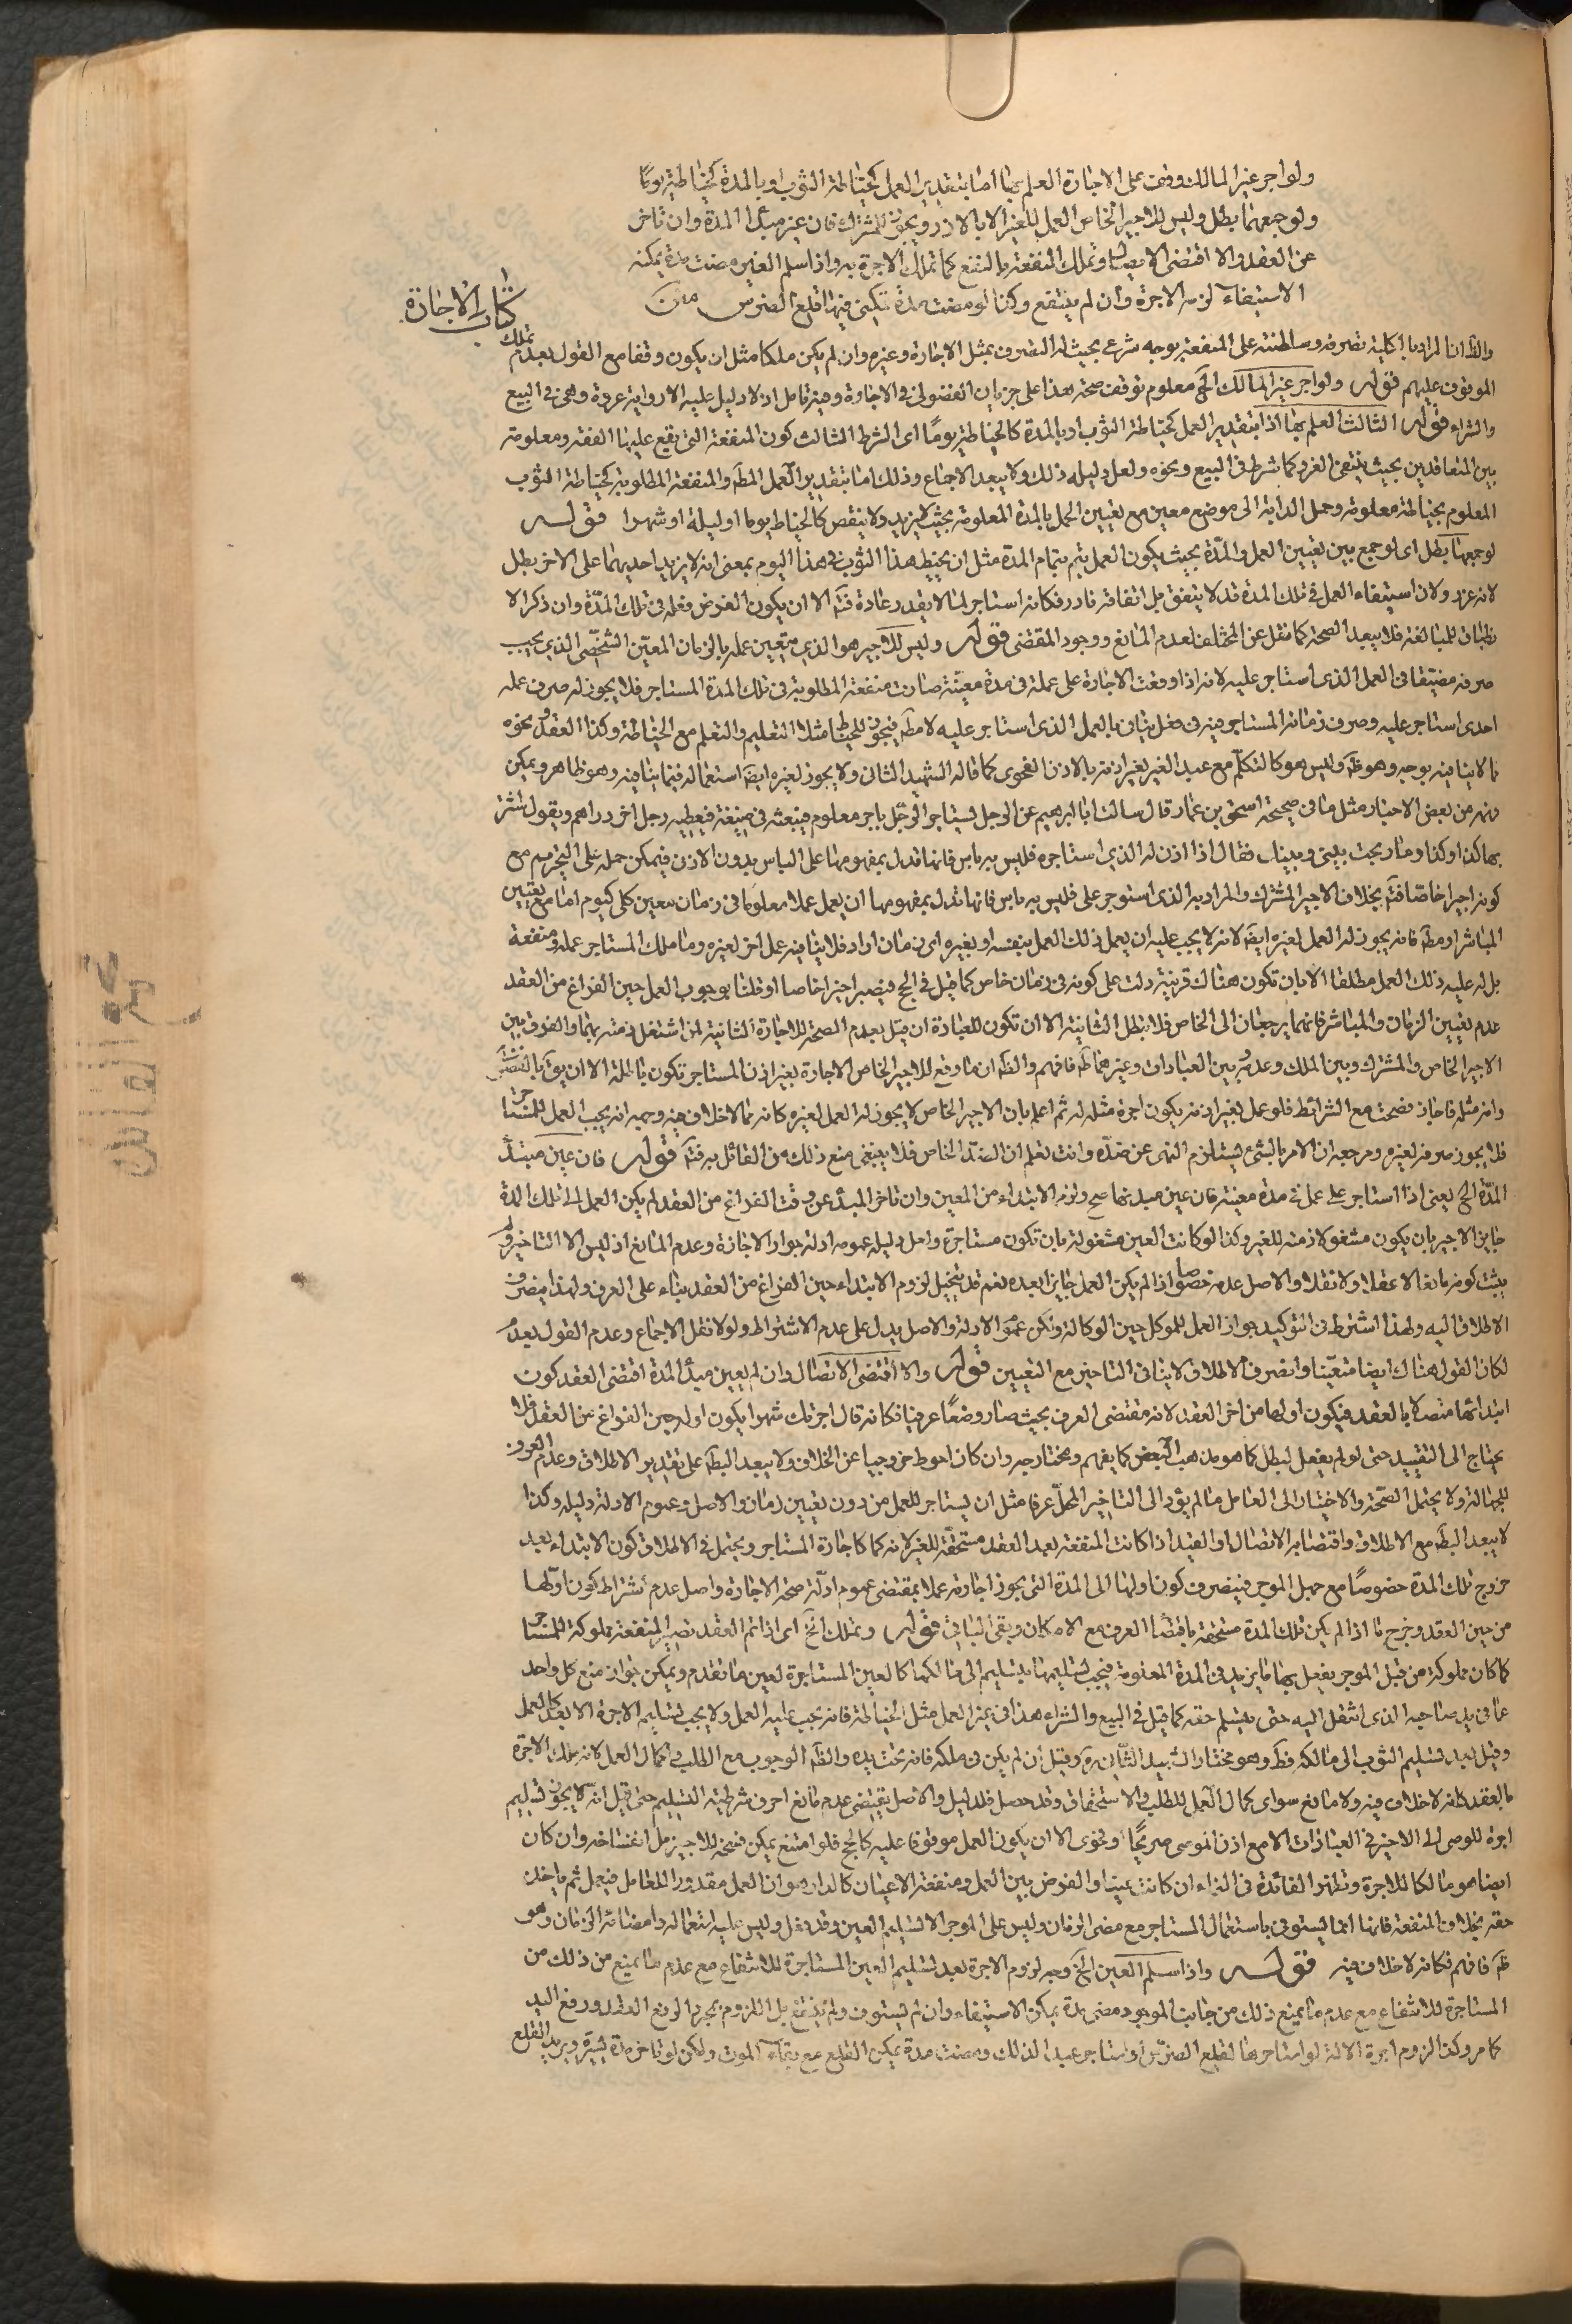 ولو اجر غير المالك وقف على الاجازة العلم بها اما بتقدير العمل كخياطة الثوب او بالمدة كخياطة يوما
ولو جمعهما بطل وليس للاجير الخاص العمل للغير الا بالاذن ويجوز للمشترك فان عين مبدأ المدة وان تاخر
عن العقد والا اقتضى الاتصال وتملك المنفعة بالنفع كما تملك الاجرة به واذا سلم العين ومضت مدة يمكنه
الاستيفاء لزمه الاجرة وان لم ينتفع وكذا لو مضت مدة تكفى فيها قلع الضرس متن
كتاب الاجازة
والظ ان المراد بالمالكية تصرفه وسلطنته على المنفعة بوجه شرعى بحيث له التصرف بمثل الاجارة وغيره وان لم يكن ملكا مثل ان يكون وقفا مع القول بعدم تملك
الموقوف عليهم قوله ولو اجر غير المالك الخ معلوم توقف صحة هذا على جريان الفضولى فى الاجارة وفيه تامل اذ لا دليل عليه الا رواية عروة وهى فى البيع
والشراء قوله الثالث العلم بها اما بتقدير العمل كخياطة الثوب او بالمدة كالخياطة يوما اى الشرط الثالث كون المنفعة التى يقع عليها العقد معلومة
بين المتعاقدين بحيث ينتفى الغرر كما شرط فى البيع ونحوه ولعل دليله ذلك ولا يبعد الاجماع وذلك اما بتقدير العمل المط والمنفعة المطلوبة كخياطة الثوب
المعلوم بخياطة معلومة وحمل الدابة الى موضع معين مع تعيين الحمل بالمدة المعلومة بحيث لا يزيد ولا ينقص كالخياط يوما او ليلة او شهرا قوله
لو جمعهما بطل اى لو جمع بين تعيين العمل والمدة بحيث يكون العمل يتم بتمام المدة مثل ان يخيط هذا الثوب فى هذا اليوم بمعنى انه لا يزيد احديهما على الاخر بطل
لانه غرر ولان استيفاء العمل فى تلك المدة قد لا يتفق بل اتفاقه نادر فكانه استاجر لما لا يقدر عادة فت الا ان يكون الغرض فعله فى تلك المدة وان ذكر الا
نطباق للمبالغة فلا يبعد الصحة كما نقل عن المختلف لعدم المانع ووجود المقتضى قوله وليس للاجير هو الذى يتعين عمله بالزمان المعين الشخصى الذى يجب
صرفه مضيقا فى العمل الذى استاجر عليه لانه اذا وقعت الاجارة على عمله فى مدة معينة صارت منفعته المطلوبة فى تلك المدة المستاجر فلا يجوز له صرف عمله
احدى استاجر عليه وصرف زمانه المستاجر فيه فى شغل ينافى بالعمل الذى استاجر عليه لا مط فيجوز للخياط مثلا التعليم والتعلم مع الخياطة وكذا العقد ونحوه
مما لا ينافيه بوجه وهو ظ وليس هو كالتكلم مع عبد الغير بغير اذنه بالاذن الفحوى كما قاله الشهيد الثانى ولا يجوز لغيره ايض استعماله فيما ينافيه وهو ظاهر ويمكن
فهمه من بعض الاخبار مثل ما فى صحيحة اسحق بن عمار قال سالت ابا ابرهيم عن الرجل يستاجر الرجل باجر معلوم فيبعثه فى ضيعته فيعطيه رجل اخر دراهم ويقول اشتر
بها كذا وكذا وما ربحت بينى وبينك فقال اذا اذن له الذى استاجره فليس به باس فانها تدل بمفهومها على الباس بدون الاذن فيمكن حمله على التحريم مع
كونه اجيرا خاصا فت بخلاف الاجير المشترك والمراد به الذى استوجر على فليس به باس فانها تدل بمفهومها ان يعمل عملا معلوما فى زمان معين كلى كيوم اما مع تعيين
المباشر او مط فانه يجوز له العمل لغيره ايض لانه لا يجب عليه ان يعمل ذلك العمل بنفسه او بغيره اى زمان اراد فلا ينافيه عمل اخر لغيره وما ملك المستاجر عمله ومنفعة
بل له عليه ذلك العمل مطلقا الا بان تكون هناك قرينة دلت على كونه فى زمان خاص كما قيل فى الحج فيصير اجيرا خاصا او قلنا بوجوب العمل حين الفراغ من العقد
عدم تعيين الزمان والمباشر فانهما يرجعان الى الخاص فلا تبطل الثانية الا ان تكون للعبادة ان قيل بعدم الصحة للاجارة الثانية لمن اشتغل ذمته بهما والفرق بين
الاجير الخاص والمشترك وبين الملك وعدمه وبين العبادات وغيرهما ظ فافهم والظ ان ما وقع للاجير الخاص الاجارة بغير اذن المستاجر تكون باطلة الا ان يق بالفضولى
وانه مثله فاجاز فصحت مع الشرائط فلو عمل بغير اذنه يكون اجرة مثله له ثم اعلم بان الاجير الخاص لا يجوز له العمل لغيره كانه مما لا خلاف فيه وجهه انه يجب العمل للمستاجر
فلا يجوز صرفه لغيره ومرجعه ان الامر بالشئ يستلزم النهى عن ضده وانت تعلم ان الضد الخاص فلا ينبغى منع ذلك من القائل به فت قوله فان عين مبتدأ
المدة الخ يعنى اذا استاجر على عمل فى مدة معينة فان عين مبدئها صح ولزم الابتداء من المعين وان تاخر المبدأ عن وقت الفراغ من العقد لم يكن العمل الى تلك المدة
جايز الاجير بان يكون مشغولا ذمته للغير وكذا لو كانت العين مشغولة بان تكون مستاجرة ولعل دليله عموم ادلة جواز الاجارة وعدم المانع اذ ليس الا التاخير ولم
يثبت كونه مانعا لا عقلا ولا نقلا والاصل عدمه خصوصا اذا لم يكن العمل جايزا بعده نعم قد يتخيل لزوم الابتداء حين الفراغ من العقد بناء على العرف ولهذا ينصرف
الاطلاق اليه ولهذا اشترط فى التوكيد جواز العمل للموكل حين الوكالة ولكن عموم الادلة والاصل يدل على عدم الاشتراط ولولا نقل الاجماع وعدم القول بعدمه
لكان القول هناك ايضا متعينا وانصراف الاطلاق لا ينافى التاخير مع التعيين قوله والا اقتضى الاتصال وان لم يعين مبدأ المدة اقتضى العقد كون
ابتدائها متصلا بالعقد فيكون اولها من اخر العقد لانه مقتضى العرف بحيث صار وضعا عرفيا فكانه قال اجرتك شهرا يكون اوله حين الفراغ من العقد فلا
يحتاج الى التقييد حتى لو لم يفعل لبطل كما هو مذهب البعض كما يفهم ومختار جمع وان كان احوط خروجيا عن الخلاف ولا يبعد البط على تقدير الاطلاق وعدم العرف
للجهالة ولا يحتمل الصحة والاختيار الى العامل ما لم يؤد الى التاخير المخل عرفا مثل ان يستاجر للعمل من دون تعيين زمان والاصل وعموم الادلة دليله وكذا
لا يبعد البط مع الاطلاق واقتضائه الاتصال او القيد اذا كانت المنفعة بعد العقد مستحقة للغير لانه كما كاجارة المستاجر ويحتمل فى الاطلاق كون الابتداء بعد
خروج تلك المدة خصوصا مع جهل الموجر فينصرف كون اولها الى المدة التى يجوز اجارته عملا بمقتضى عموم ادلة صحة الاجارة واصل عدم اشتراط كون اولها
من حين العقد وخرج ما اذا لم يكن تلك المدة مستحقة باقتضا العرف مع الامكان ويبقى الباقى قوله وتملك الخ اى اذا تم العقد تصير المنفعة مملوكة للمستاجر
كما كان مملوكة من قبل الموجر يفعل بها ما يريد فى المدة المعلومة فيجب تسليمها بتسليم الى مالكها كالعين المستاجرة لعين ما تقدم ويمكن جواز منع كل واحد
عما فى يد صاحبه الذى انتقل اليه حتى يتسلم حقه كما قيل فى البيع والشراء هذا فى غير العمل مثل الخياطة فانه يجب عليه العمل ولا يجب تسليم الاجرة الا بعد كمال العمل
وقيل بعد تسليم الثوب الى مالكه فظ وهو مختار الشهيد الثانى ره وقيل ان لم يكن فى ملكه فانه تحت يده والظ الوجوب مع الطلب فى اكمال العمل لانه ملك الاجرة
بالعقد كانه لا خلاف فيه ولا مانع سوى كمال العمل للطلب والاستحقاق وقد حصل فلدليل والاصل يقتضى عدم مانع اخر من شرطية التسليم حتى قيل انه لا يجوز تسليم
اجرة للوصى الى الاجير فى العبادات الا مع اذن الموصى صريحا او فحوى الا ان يكون العمل موقوفا عليه كالحج فلو امتنع يمكن فسخه للاجير بل انفساخه وان كان
ايضا هو مالكا للاجرة وتظهر الفائدة فى النماء ان كانت عينا والفرض بين العمل ومنفعة الاعيان كالدار هو ان العمل مقدور للعامل فيعمل ثم ياخذ
حقه بخلاف المنفعة فانها انما يستوفى باستعمال المستاجر مع مضى الزمان وليس على الموجر الا تسليم العين وقد فعل وليس عليه استعماله وامضائه الزمان وهو
ظ فافهم فكانه لا خلاف فيه قوله واذا سلم العين الخ وجه لزوم الاجرة بعد تسليم العين المستاجرة للانتفاع مع عدم ما يمنع من ذلك من
المستاجرة للانتفاع مع عدم ما يمنع ذلك من جانب الموجود مضى مدة يمكن الاستيفاء وان لم يستوف ولم ينتفع بل اللزوم بمجرد الرفع العقد ورفع اليد
كما مر وكذا لزوم اجرة الالة لو استاجرها لقلع الضرس او استاجر عبدا لذلك ومضت مدة يمكن القلع مع بقاء الموت ولكن لو تاخر مدة يسيرة ويريد القلع